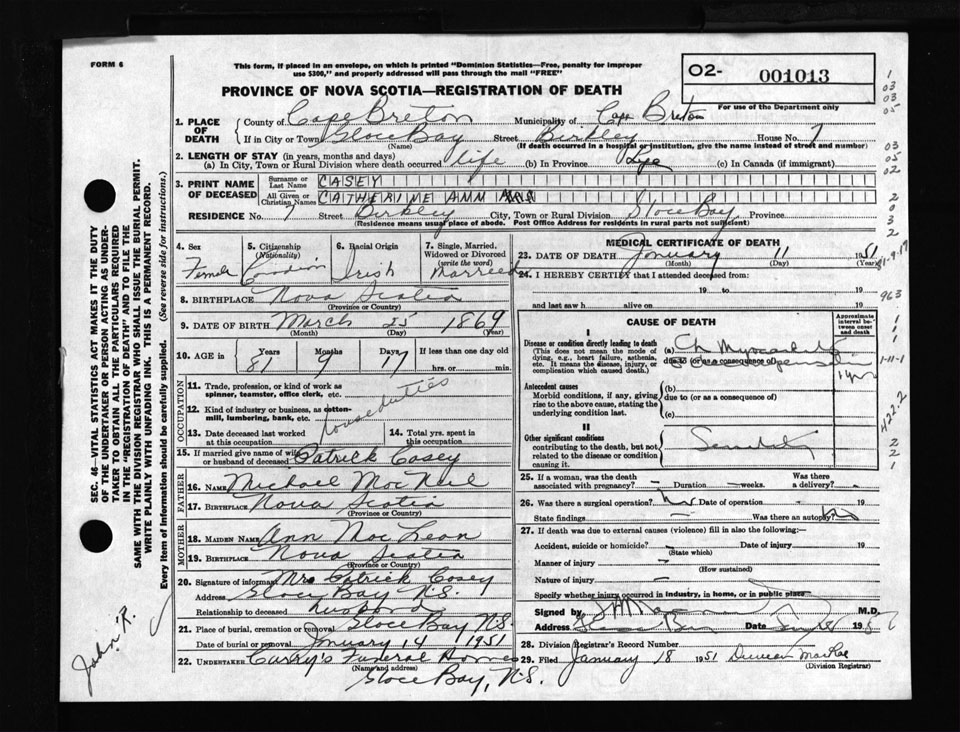 FORM 6
This form, if placed in an envelope, on which is printed "Dominion Statistics—Free, penalty for improper
use $300," and properly addressed will pass through the mail "FREE"
O2- 001013
PROVINCE OF NOVA SCOTIA—REGISTRATION OF DEATH
For use of the Department only
1. PLACE OF DEATH
County of Cape Breton Municipality of Cape Breton
If in City or Town Glace Bay Street Birkley House No. 7
(Name) (If death occurred in a hospital or institution, give the name instead of street and number)
2. LENGTH OF STAY (in years, months and days)
(a) In City, Town or Rural Division where death occurred life (b) In Province Life (c) In Canada (if immigrant)
3. PRINT NAME OF DECEASED
Surname or Last Name CASEY
All Given or Christian Names CATHERINE ANN
RESIDENCE No. 7 Street Birkley City, Town or Rural Division Glace Bay Province
(Residence means usual place of abode. Post Office Address for residents in rural parts not sufficient)
4. Sex Female
5. Citizenship (Nationality) Canadian
6. Racial Origin Irish
7. Single, Married, Widowed or Divorced (write the word) Married
8. BIRTHPLACE Nova Scotia
(Province or Country)
9. DATE OF BIRTH March 25 1869
(Month) (Day) (Year)
10. AGE in 81 Years 9 Months 17 Days If less than one day old
hrs. or min.
OCCUPATION
11. Trade, profession, or kind of work as
spinner, teamster, office clerk, etc.
house duties
12. Kind of industry or business, as cotton-
mill, lumbering, bank, etc.
13. Date deceased last worked
at this occupation
14. Total yrs. spent in
this occupation
15. If married give name of wife
or husband of deceased Patrick Casey
FATHER
16. NAME Michael MacNeil
17. BIRTHPLACE Nova Scotia
(Province or Country)
MOTHER
18. MAIDEN NAME Ann MacLean
19. BIRTHPLACE Nova Scotia
(Province or Country)
20. Signature of informant Mrs Patrick Casey
Address Glace Bay N.S.
Relationship to deceased husband
21. Place of burial, cremation or removal Glace Bay N.S.
Date of burial or removal January 14 1951
22. UNDERTAKER Curry's Funeral Home
(Name and address)
Glace Bay, N.S.
MEDICAL CERTIFICATE OF DEATH
23. DATE OF DEATH January 11 1951
(Month) (Day) (Year)
24. I HEREBY CERTIFY that I attended deceased from:
19 to 19
and last saw h alive on 19
CAUSE OF DEATH
Approximate interval between onset and death
I
Disease or condition directly leading to death
(This does not mean the mode of
dying, e.g., heart failure, asthenia,
etc. It means the disease, injury, or
complication which caused death.)
(a) Ch Myocarditis
due to (or as a consequence of)
Antecedent causes
Morbid conditions, if any, giving
rise to the above cause, stating the
underlying condition last.
(b)
due to (or as a consequence of)
(c)
II
Other significant conditions
contributing to the death, but not
related to the disease or condition
causing it.
25. If a woman, was the death
associated with pregnancy? – Duration – weeks. Was there a delivery? -
26. Was there a surgical operation? no Date of operation - 19
State findings – Was there an autopsy? no
27. If death was due to external causes (violence) fill in also the following:—
Accident, suicide or homicide? – Date of injury 19
(State which)
Manner of injury –
(How sustained)
Nature of injury –
Specify whether injury occurred in industry, in home, or in public place
Signed by M.D.
Address Glace Bay Date 19
28. Division Registrar's Record Number
29. Filed January 18 1951 Duncan MacRae
(Division Registrar)
SEC. 46—VITAL STATISTICS ACT MAKES IT THE DUTY
OF THE UNDERTAKER OR PERSON ACTING AS UNDER-
TAKER TO OBTAIN ALL THE PARTICULARS REQUIRED
IN THE "REGISTRATION OF DEATH" AND TO FILE THE
SAME WITH THE DIVISION REGISTRAR WHO SHALL ISSUE THE BURIAL PERMIT.
WRITE PLAINLY WITH UNFADING INK. THIS IS A PERMANENT RECORD.
Every item of information should be carefully supplied. (See reverse side for instructions.)
John R.
1
03
03
05
03
05
02
2
0
3
2
963
1
1
1
1-11-1
422.2
2
2
1